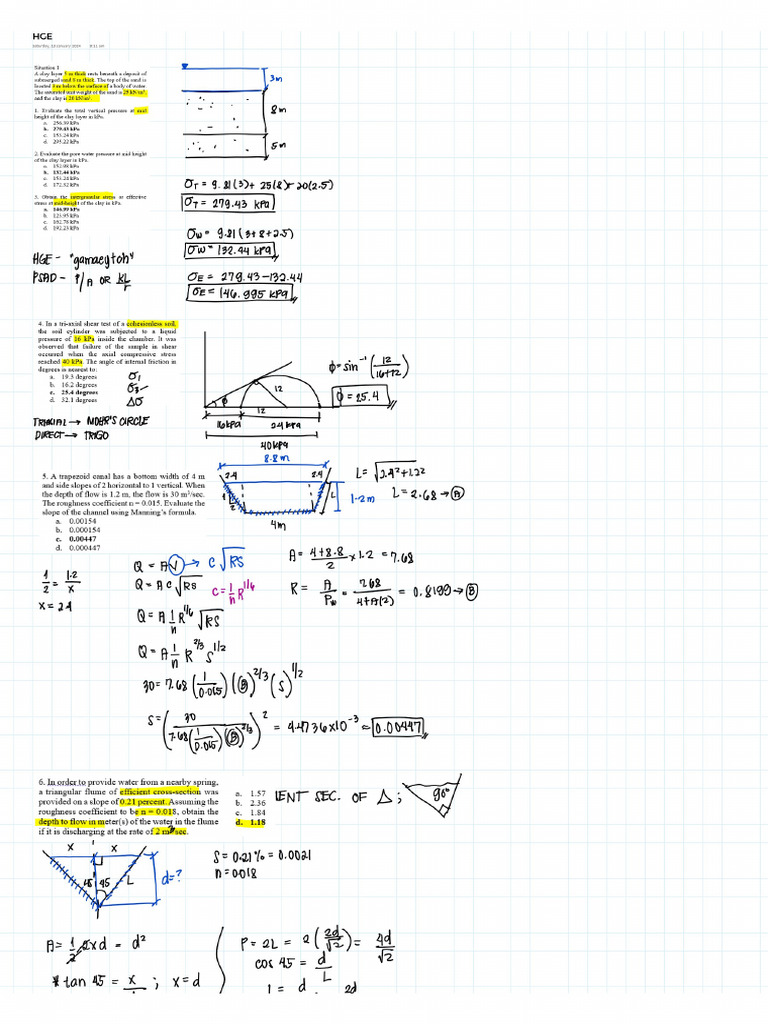 HGE
Saturday, 13 January 2024 9:11 AM
Situation 1
A clay layer 5 m thick rests beneath a deposit of
submerged sand 8 m thick. The top of the sand is
located 3 m below the surface of a body of water.
The saturated unit weight of the sand is 25 kN/m³,
and the clay is 20 kN/m³.
1. Evaluate the total vertical pressure at mid
height of the clay layer in kPa.
a. 256.39 kPa
b. 279.43 kPa
c. 153.24 kPa
d. 295.22 kPa
2. Evaluate the pore water pressure at mid height
of the clay layer in kPa.
a. 152.98 kPa
b. 132.44 kPa
c. 153.24 kPa
d. 172.32 kPa
3. Obtain the intergranular stress or effective
stress at mid-height of the clay in kPa.
a. 146.99 kPa
b. 123.95 kPa
c. 162.78 kPa
d. 192.23 kPa
3m
8m
5m
σT = 9.81(3) + 25(8) + 20(2.5)
σT = 279.43 kPa
σW = 9.81(3+8+2.5)
σW = 132.44 kPa
σE = 279.43 - 132.44
σE = 146.995 kPa
HGE - "gamaeytoh"
PSAD - P/A OR KL/r
4. In a tri-axial shear test of a cohesionless soil,
the soil cylinder was subjected to a liquid
pressure of 16 kPa inside the chamber. It was
observed that failure of the sample in shear
occurred when the axial compressive stress
reached 40 kPa. The angle of internal friction in
degrees is nearest to:
a. 19.3 degrees
b. 16.2 degrees
c. 25.4 degrees
d. 32.1 degrees
σ1
σ3
Δσ
TRIAXIAL → MOHR'S CIRCLE
DIRECT → TRIGO
φ
12
12
16kPa
24kPa
40kPa
φ = sin⁻¹ (12 / 16+12)
φ = 25.4
5. A trapezoid canal has a bottom width of 4 m
and side slopes of 2 horizontal to 1 vertical. When
the depth of flow is 1.2 m, the flow is 30 m³/sec.
The roughness coefficient n = 0.015. Evaluate the
slope of the channel using Manning's formula.
a. 0.00154
b. 0.000154
c. 0.00447
d. 0.000447
8.8m
2.4
2.4
1
2
L
1.2m
4m
L = √2.4²+1.2²
L = 2.68 → A
1/2 = 1.2/x
x = 2.4
Q = AV → C√RS
Q = AC√RS
C = 1/n R^1/6
Q = A 1/n R^1/6 √RS
Q = A 1/n R^2/3 S^1/2
30 = 7.68 (1/0.015) (B)^2/3 (S)^1/2
S = (30 / 7.68(1/0.015)(B)^2/3)² = 4.4736x10⁻³ ≈ 0.00447
A = 4+8.8 / 2 x 1.2 = 7.68
R = A/Pw = 7.68 / 4+A(2) = 0.8199 → B
6. In order to provide water from a nearby spring,
a triangular flume of efficient cross-section was
provided on a slope of 0.21 percent. Assuming the
roughness coefficient to be n = 0.018, obtain the
depth to flow in meter(s) of the water in the flume
if it is discharging at the rate of 2 m³/sec.
a. 1.57
b. 2.36
c. 1.84
d. 1.18
IENT SEC. OF △ ;
90°
x
x
45
45
L
d=?
S = 0.21% = 0.0021
n = 0.018
A = 1/2 2xd = d²
* tan 45 = x ; x = d
P = 2L = 2 (2d/√2) = 4d/√2
cos 45 = d/L